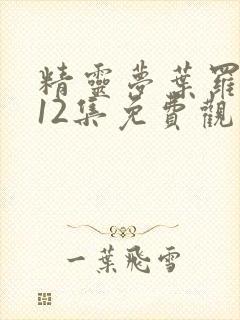 精靈夢葉羅
12集免費觀
一葉飛雪